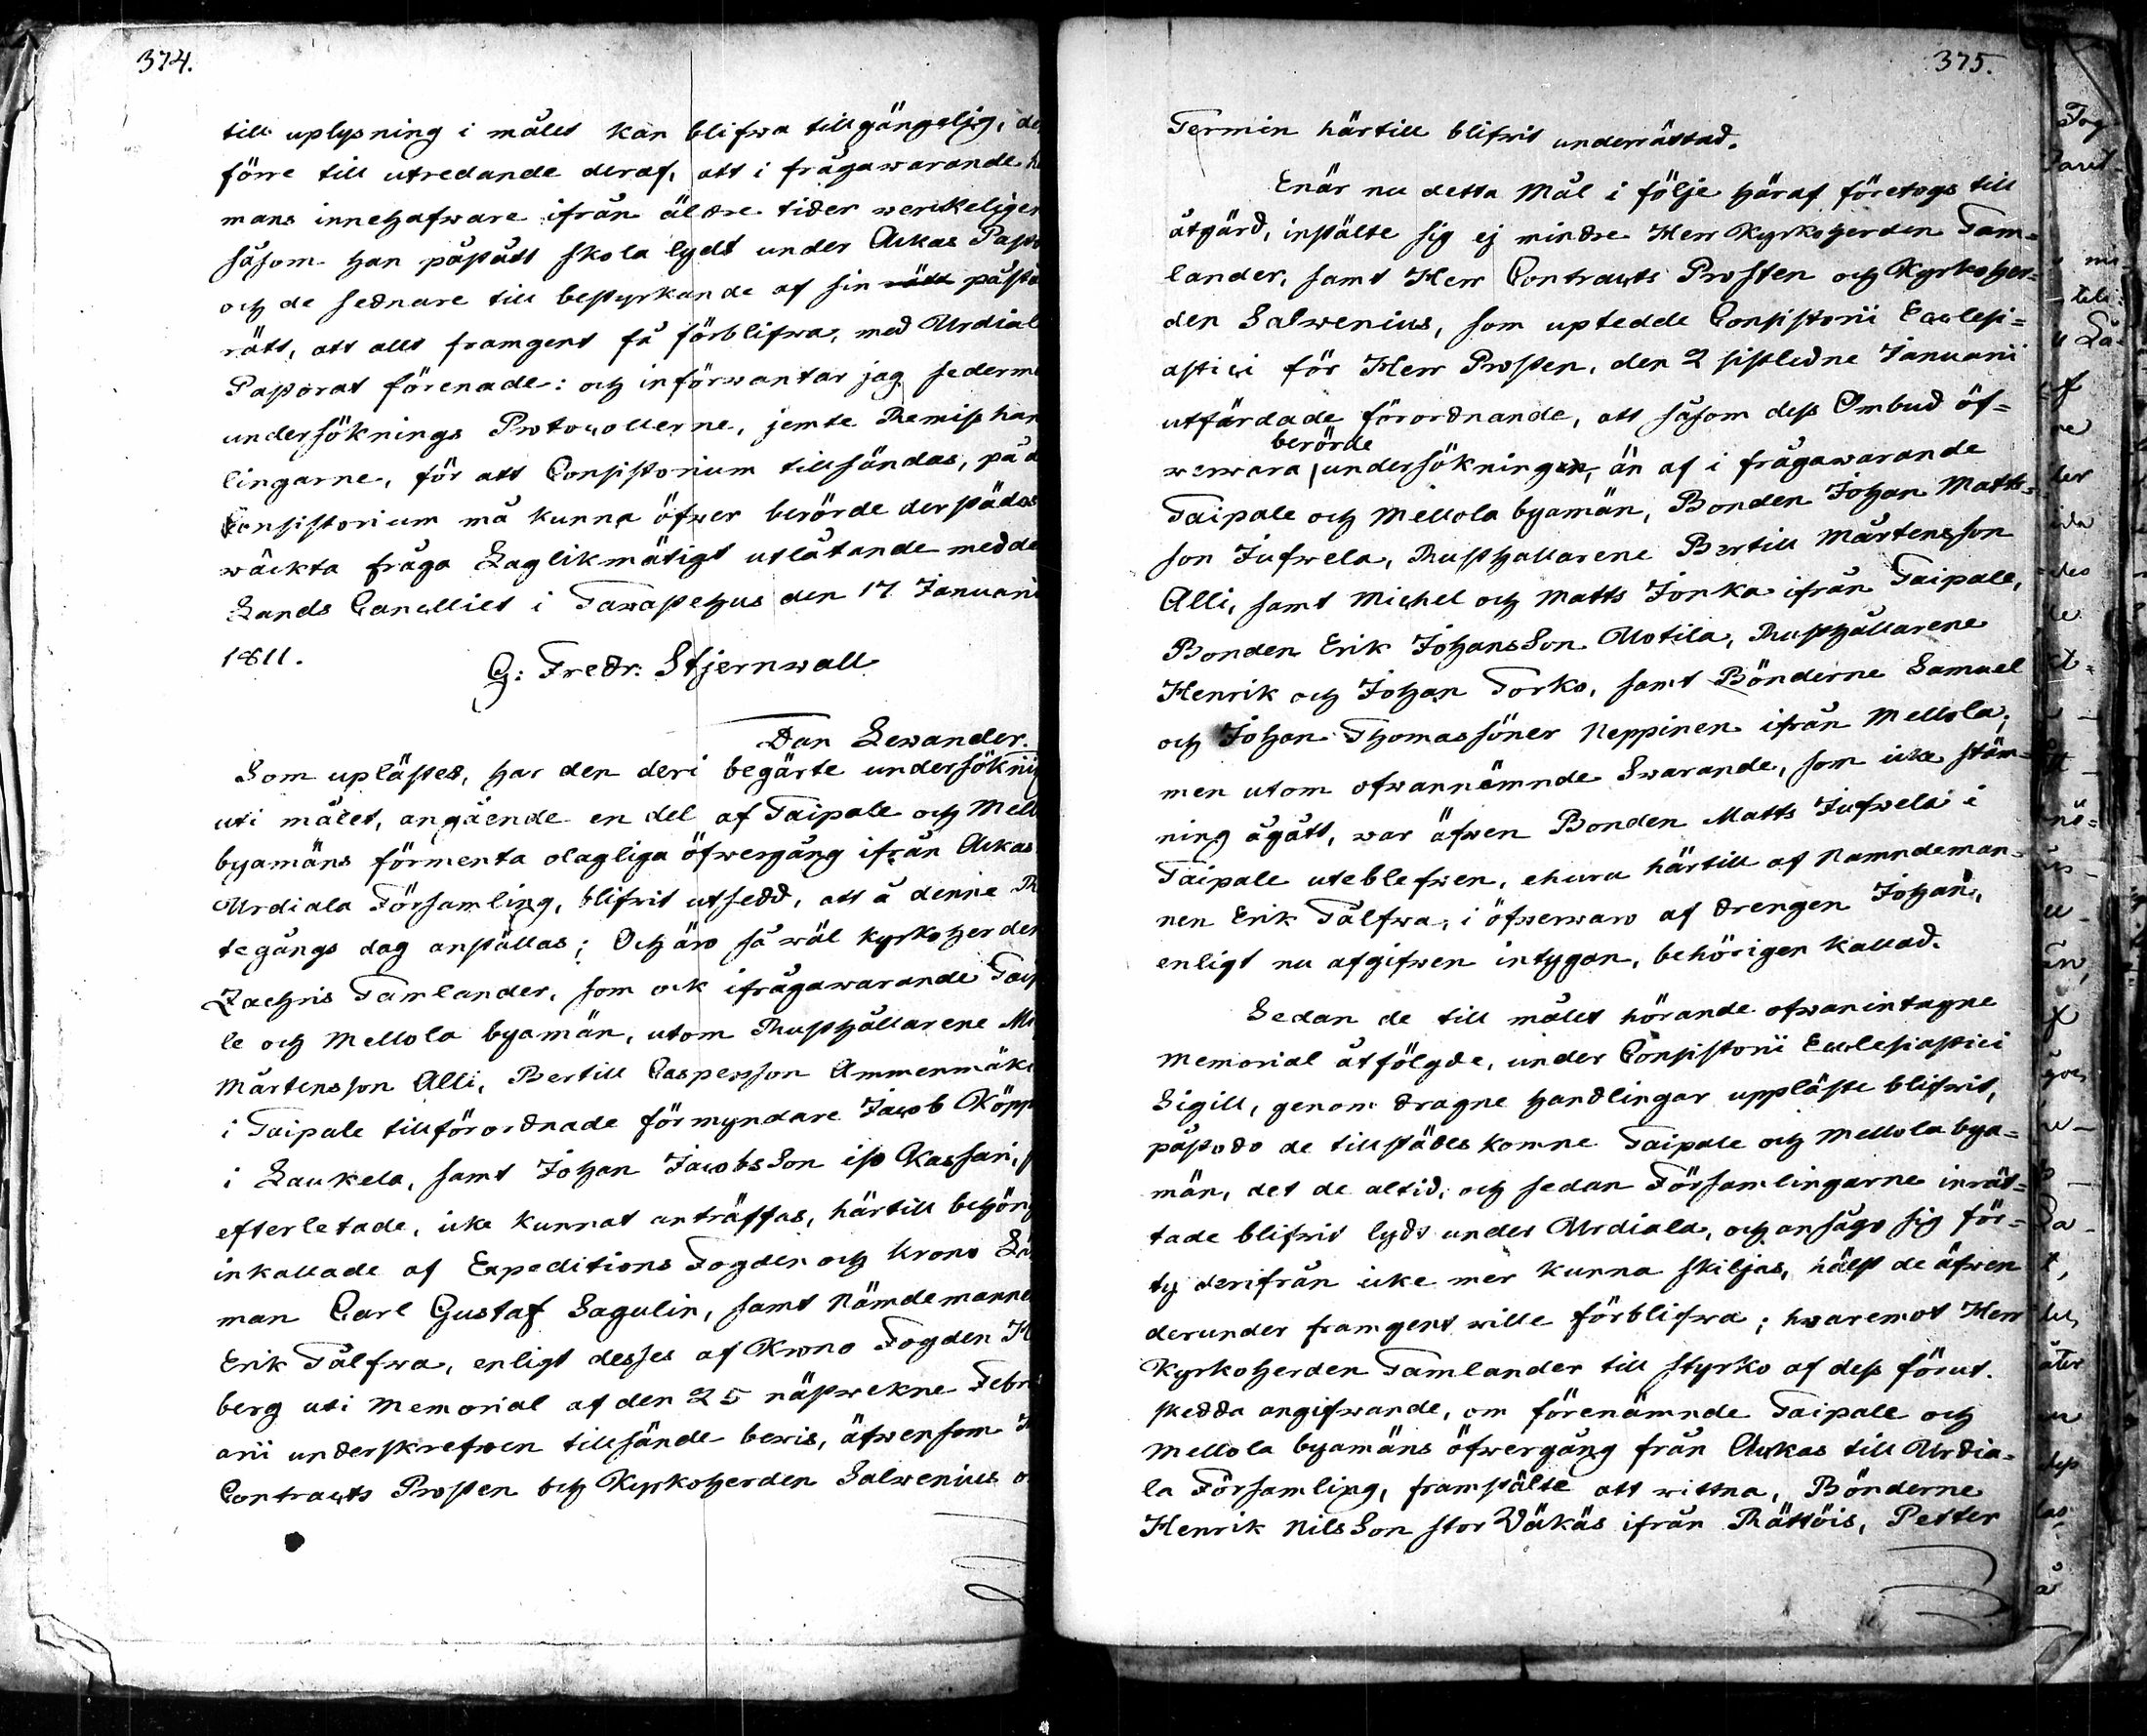 374.
till uplysning i målet kan blifwa tillgängelig, de
förre till utredande deraf, att i frågawarande he
mans innehafware ifrån äldre tider werckeligen
såsom han påstått skola lydt under Ackas Pasto
och de sednare till bestyrkande af sin rätt påstå
rätt, att allt framgent få förblifwa, med Urdiala
Pastorat förenade: och införwäntar jag sederme
undersöknings Protocollerne, jemte Remiss han
lingarne, för att Consistorium tillsändas, på d
Consistorium må kunna öfwer berörde derstädes
wäckta fråga Laglikmätigt utlåtande medde
Lands Cancelliet i Tawastehus den 17 Januarii
1811.
G: Fredr: Stjernwall
Dan Lewander.
Som uplästes, har den deri begärte undersöknin
uti målet, angående en del af Taipale och Mell
byamäns förmenta olagliga öfwergång ifrån Ackas
Urdiala Församling, blifwit utsedd, att å denne R
tegångs dag anställas; Och äro så wäl kyrkoherden
Zachris Tamlander, som ock ifrågawarande Taip
le och Mellola byamän, utom Rusthållarene Mi
Mårtensson Alli, Bertill Caspersson Ammenmäki
i Taipale tillförordnade förmyndare Jacob Köpp
i Laukela, samt Johan JacobsSon iso Kassari,
efterletade, icke kunnat anträffas, härtill behörig
inkallade af Expeditions Fogden och Krono Län
man Carl Gustaf Sagulin, samt Nämdemannen
Erik Tålfwa, enligt desses af Krono Fogden H
berg uti Memorial af den 25 nästwekne Febru
arii underskrefwen tillsände bewis, äfwensom H
Contracts Prosten och Kyrkoherden Salwenius o
375.
Termin härtill blifwit underrättad.
Enär nu detta Mål i följe häraf företogs till
åtgärd, instälte sig ej mindre Herr Kyrkoherden Tam=
lander, samt Herr Contracts Prosten och Kyrkoher=
den Salwenius, som uptedde Consistorii Ecclesi=
astici för Herr Prosten, den 2 sistledne Januarii
utfärdade förordnande, att såsom dess Ombud öf=
berörde
werwara undersökningen, än af i frågawarande
Taipale och Mellola byamän, Bonden Johan Matts=
son Jufwela, Rusthållarene Bertill Mårtensson
Alli, samt Michel och Matts Jonka ifrån Taipale,
Bonden Erik JohansSon Uotila, Rusthållarene
Henrik och Johan Torko, samt Bönderne Samuel
och Johan Thomassöner Neppinen ifrån Mellola;
men utom ofwannämnde Swarande, som icke stäm=
ning ågått, war äfwen Bonden Matts Jufwela i
Taipale uteblefwen, ehuru härtill af Namndeman=
nen Erik Tålfwa, i öfwerwaro af drengen Johan,
enligt nu afgifwen intygan, behörigen kallad.
Sedan de till målet hörande ofwanintagne
Memorial åtföljde, under Consistorii Ecclesiastici
Sigill, genom dragne handlingar uppläste blifwit,
påstodo de tillstädes komne Taipale och Mellola bya=
män, det de altid, och sedan Församlingarne inrät=
tade blifwit lydt under Urdiala, och ansågo sig för=
ty derifrån icke mer kunna skiljas, hälst de äfwen
derunder framgent wille förblifwa; hwaremot Herr
Kyrkoherden Tamlander till styrko af dess förut.
skedda angifwande, om förenämnde Taipale och
Mellola byamäns öfwergång från Ackas till Urdia=
la Församling, framstälte att wittna, Bönderne
Henrik NilsSon stor Wäkäs ifrån Rättöis, Petter